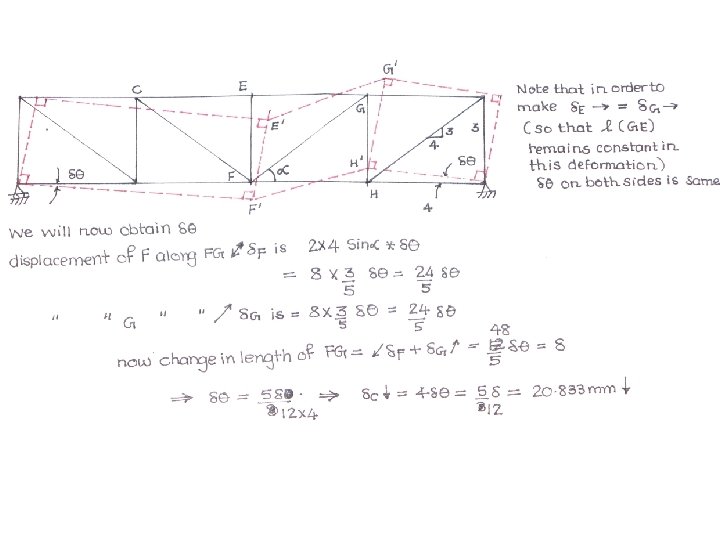 G'
C
E
G
E'
3
4
3
H'
δθ
δθ
F
α
F'
H
4
Note that in order to
make δE → = δG →
(so that l (GE)
remains constant in
this deformation)
δθ on both sides is same
We will now obtain δθ
displacement of F along FG ↙ δF is 2x4 Sinα * δθ
= 8 x 3/5 δθ = 24/5 δθ
" " G " " ↗ δG is = 8x3/5 δθ = 24/5 δθ
now change in length of FG = ↙δF + δG↗ = 48/5 δθ = δ
⇒ δθ = 5δ/12x4 . ⇒ δC↓ = 4δθ = 5δ/12 = 20.833mm ↓